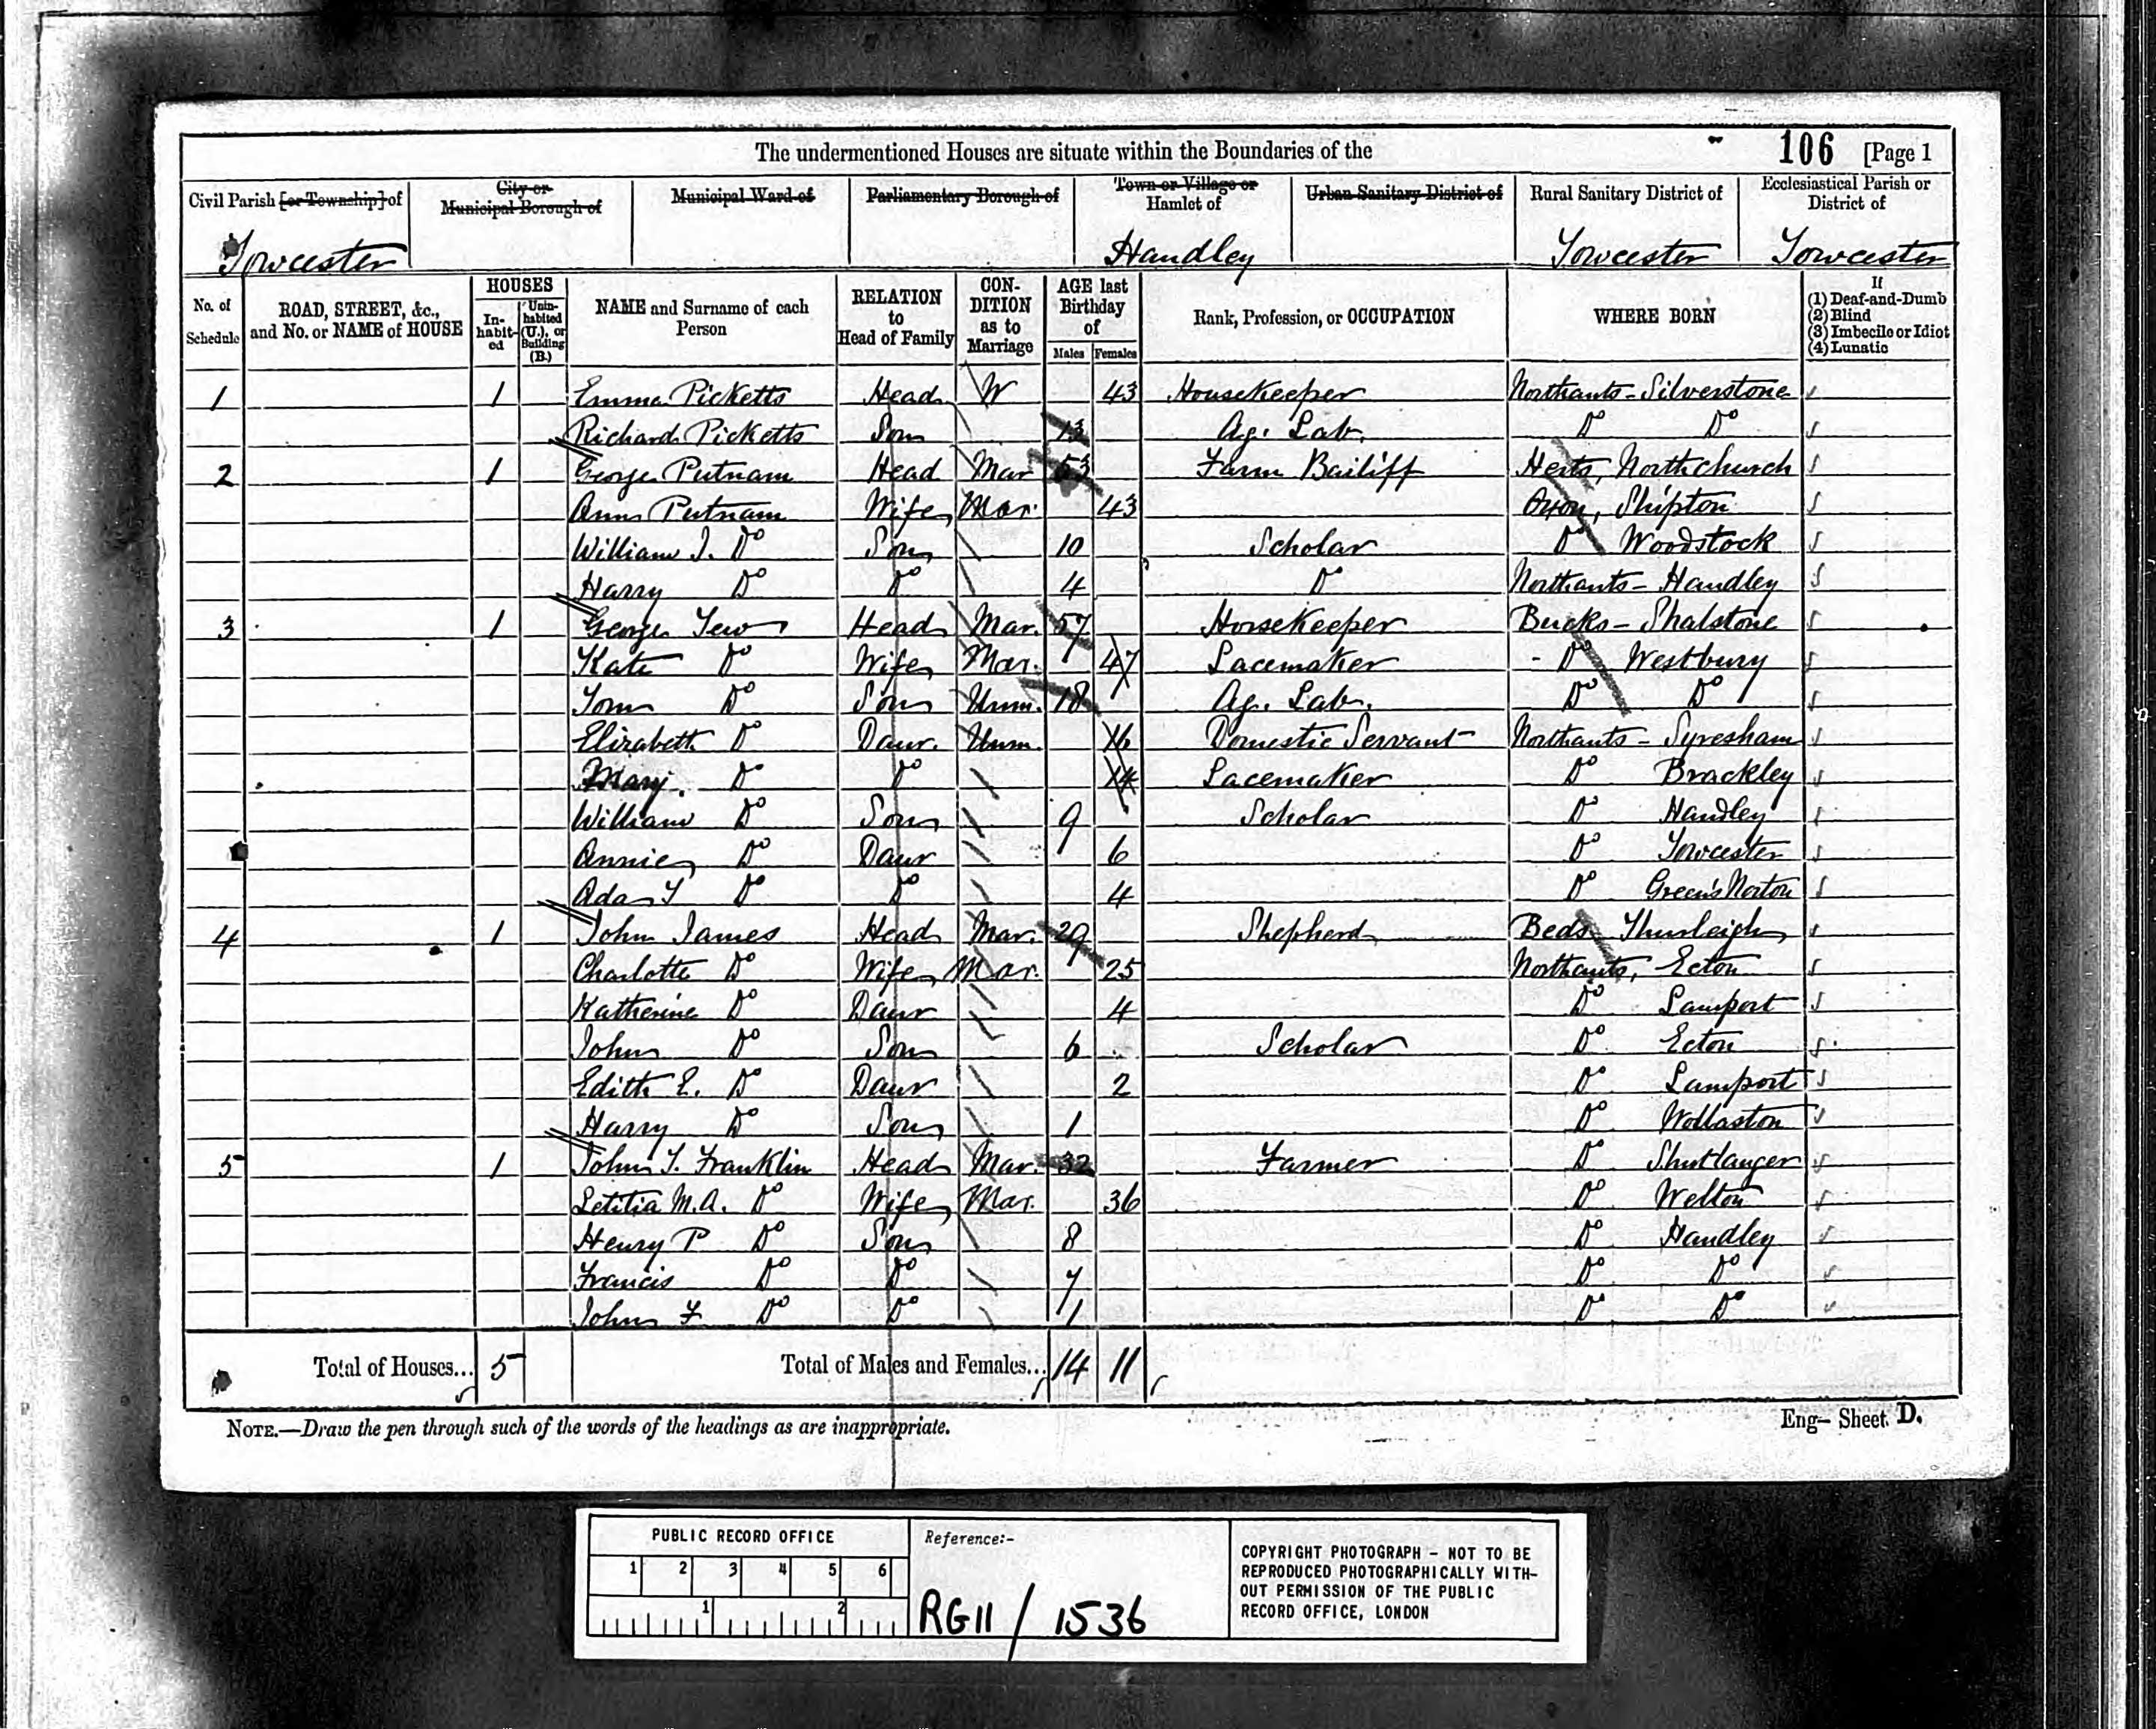 The undermentioned Houses are situate within the Boundaries of the 106 [Page 1
Civil Parish [or Township] of City or Municipal Borough of Municipal Ward of Parliamentary Borough of Town or Village or Hamlet of Urban Sanitary District of Rural Sanitary District of Ecclesiastical Parish or District of
Towcester Handley Towcester Towcester
No. of Schedule ROAD, STREET, &c., and No. or NAME of HOUSE HOUSES In-habit-ed Unin-habited (U.), or Building (B.) NAME and Surname of each Person RELATION to Head of Family CON-DITION as to Marriage AGE last Birthday of Males Females Rank, Profession, or OCCUPATION WHERE BORN If (1) Deaf-and-Dumb (2) Blind (3) Imbecile or Idiot (4) Lunatic
1 1 Emma Picketts Head W 43 Housekeeper Northants - Silverstone
Richard Picketts Son 13 Ag. Lab. Do Do
2 1 George Putnam Head Mar 53 Farm Bailiff Herts, Northchurch
Ann Putnam Wife Mar. 43 Oxon, Shipton
William J. Do Son 10 Scholar Do Woodstock
Harry Do Do 4 Do Northants - Handley
3 1 George Tew Head Mar. 57 Horsekeeper Bucks - Shalstone
Kate Do Wife Mar. 47 Lacemaker - Do Westbury
Tom Do Son Unm. 18 Ag. Lab. Do Do
Elizabeth Do Daur. Unm. 16 Domestic Servant Northants - Syresham
Mary. Do Do 14 Lacemaker Do Brackley
William Do Son 9 Scholar Do Handley
Annie Do Daur 6 Do Towcester
Ada T Do Do 4 Do Green's Norton
4 1 John James Head Mar. 29 Shepherd Beds Thurleigh
Charlotte Do Wife Mar. 25 Northants, Ecton
Katherine Do Daur 4 Do Lamport
John Do Son 6 Scholar Do Ecton
Edith E. Do Daur 2 Do Lamport
Harry Do Son 1 Do Wollaston
5 1 John T. Franklin Head Mar. 32 Farmer Do Shutlanger
Letitia M.A. Do Wife Mar. 36 Do Welton
Henry P Do Son 8 Do Handley
Francis Do Do 7 Do Do
John F Do Do 1 Do Do
Total of Houses... 5 Total of Males and Females... 14 11
NOTE.—Draw the pen through such of the words of the headings as are inappropriate. Eng- Sheet. D.
PUBLIC RECORD OFFICE
1 2 3 4 5 6
1 2
Reference:-
RG11 / 1536
COPYRIGHT PHOTOGRAPH - NOT TO BE
REPRODUCED PHOTOGRAPHICALLY WITH-
OUT PERMISSION OF THE PUBLIC
RECORD OFFICE, LONDON